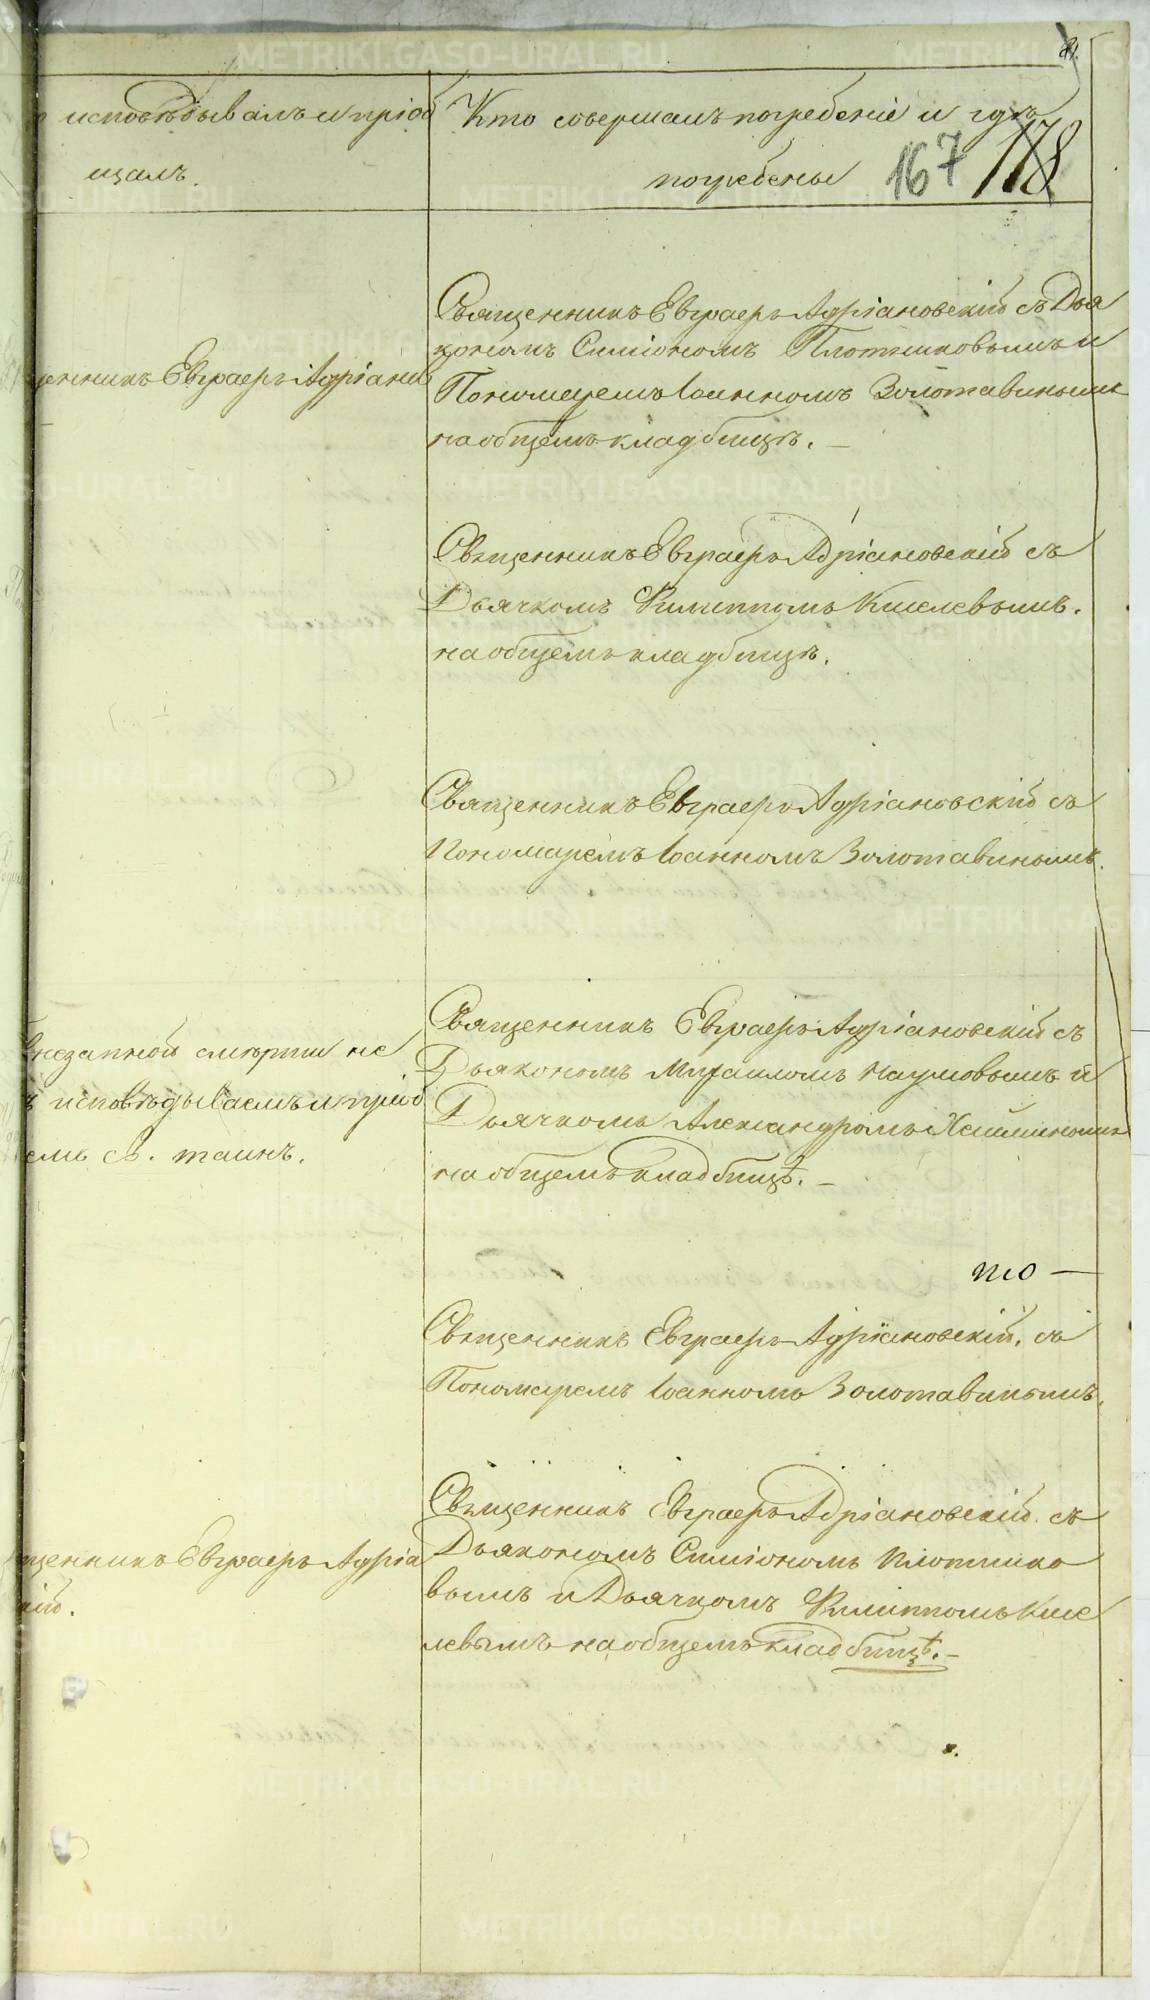 исповѣдывалъ и пріоб
щалъ.
Кто совершалъ погребеніе и гдѣ
погребены
167 178
Священникъ Евграфъ Адріановскій съ Діа
кономъ Симіономъ Плотниковымъ и
Пономаремъ Іоанномъ Золотавинымъ
на общемъ кладбищѣ. —
щенникъ Евграфъ Адріанов
Священникъ Евграфъ Адріановскій съ
Дьячкомъ Филиппомъ Киселевымъ.
на общемъ кладбищѣ.
Священникъ Евграфъ Адріановскій съ
Пономаремъ Іоанномъ Золотавинымъ.
Священникъ Евграфъ Адріановскій съ
Дьякономъ Михаиломъ Наумовымъ и
Дьячкомъ Александромъ
на общемъ кладбищѣ. —
внезапной смерти не
ъ исповѣдываемъ и пріоб
емъ св. таинъ.
то —
Священникъ Евграфъ Адріановскій, съ
Пономаремъ Іоанномъ Золотавинымъ.
Священникъ Евграфъ Адріановскій съ
Дьякономъ Симіономъ Плотнико
вымъ и Дьячкомъ Филиппомъ Кисе
левымъ на общемъ кладбищѣ. —
щенникъ Евграфъ Адріа
кій.
METRIKI.GASO-URAL.RU